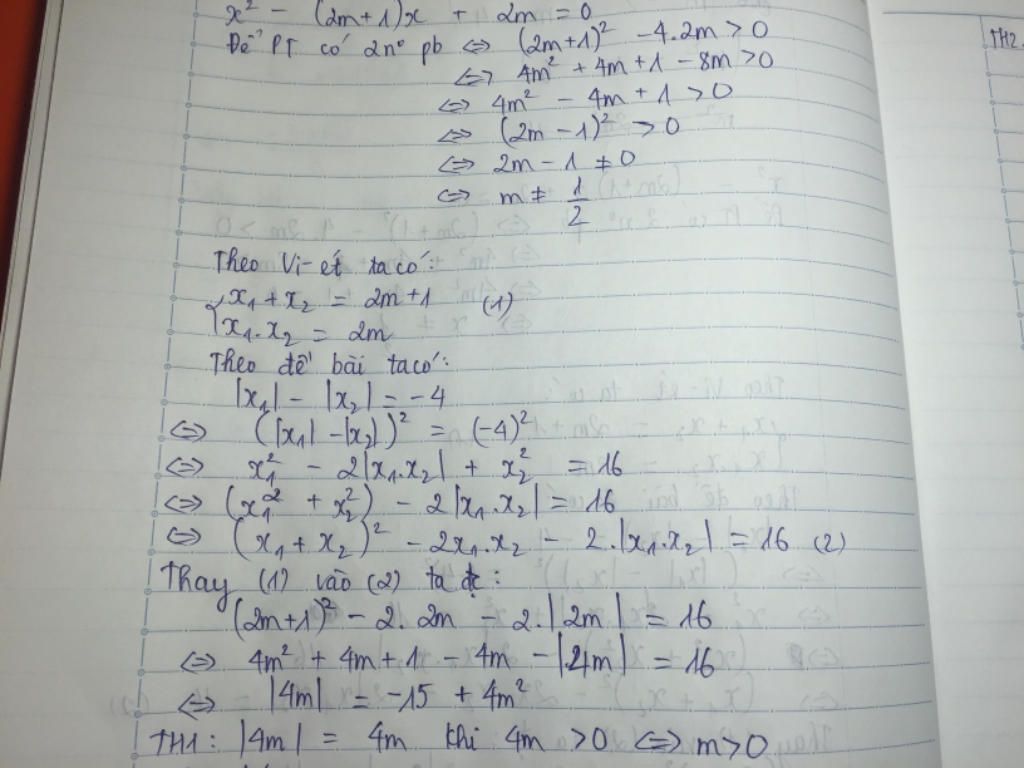 x² - (2m+1)x + 2m = 0
Để PT có 2n⁰ pb ⇔ (2m+1)² - 4.2m > 0
⇔ 4m² + 4m + 1 - 8m > 0
⇔ 4m² - 4m + 1 > 0
⇔ (2m - 1)² > 0
⇔ 2m - 1 ≠ 0
⇔ m ≠ 1/2
Theo Vi-ét ta có:
{ x₁ + x₂ = 2m+1 (1)
x₁.x₂ = 2m
Theo đề bài ta có:
|x₁| - |x₂| = -4
⇔ (|x₁| - |x₂|)² = (-4)²
⇔ x₁² - 2|x₁.x₂| + x₂² = 16
⇔ (x₁² + x₂²) - 2|x₁.x₂| = 16
⇔ (x₁ + x₂)² - 2x₁.x₂ - 2.|x₁.x₂| = 16 (2)
Thay (1) vào (2) ta đc:
(2m+1)² - 2.2m - 2.|2m| = 16
⇔ 4m² + 4m + 1 - 4m - |4m| = 16
⇔ |4m| = -15 + 4m²
TH1: |4m| = 4m khi 4m > 0 ⇔ m > 0
TH2: